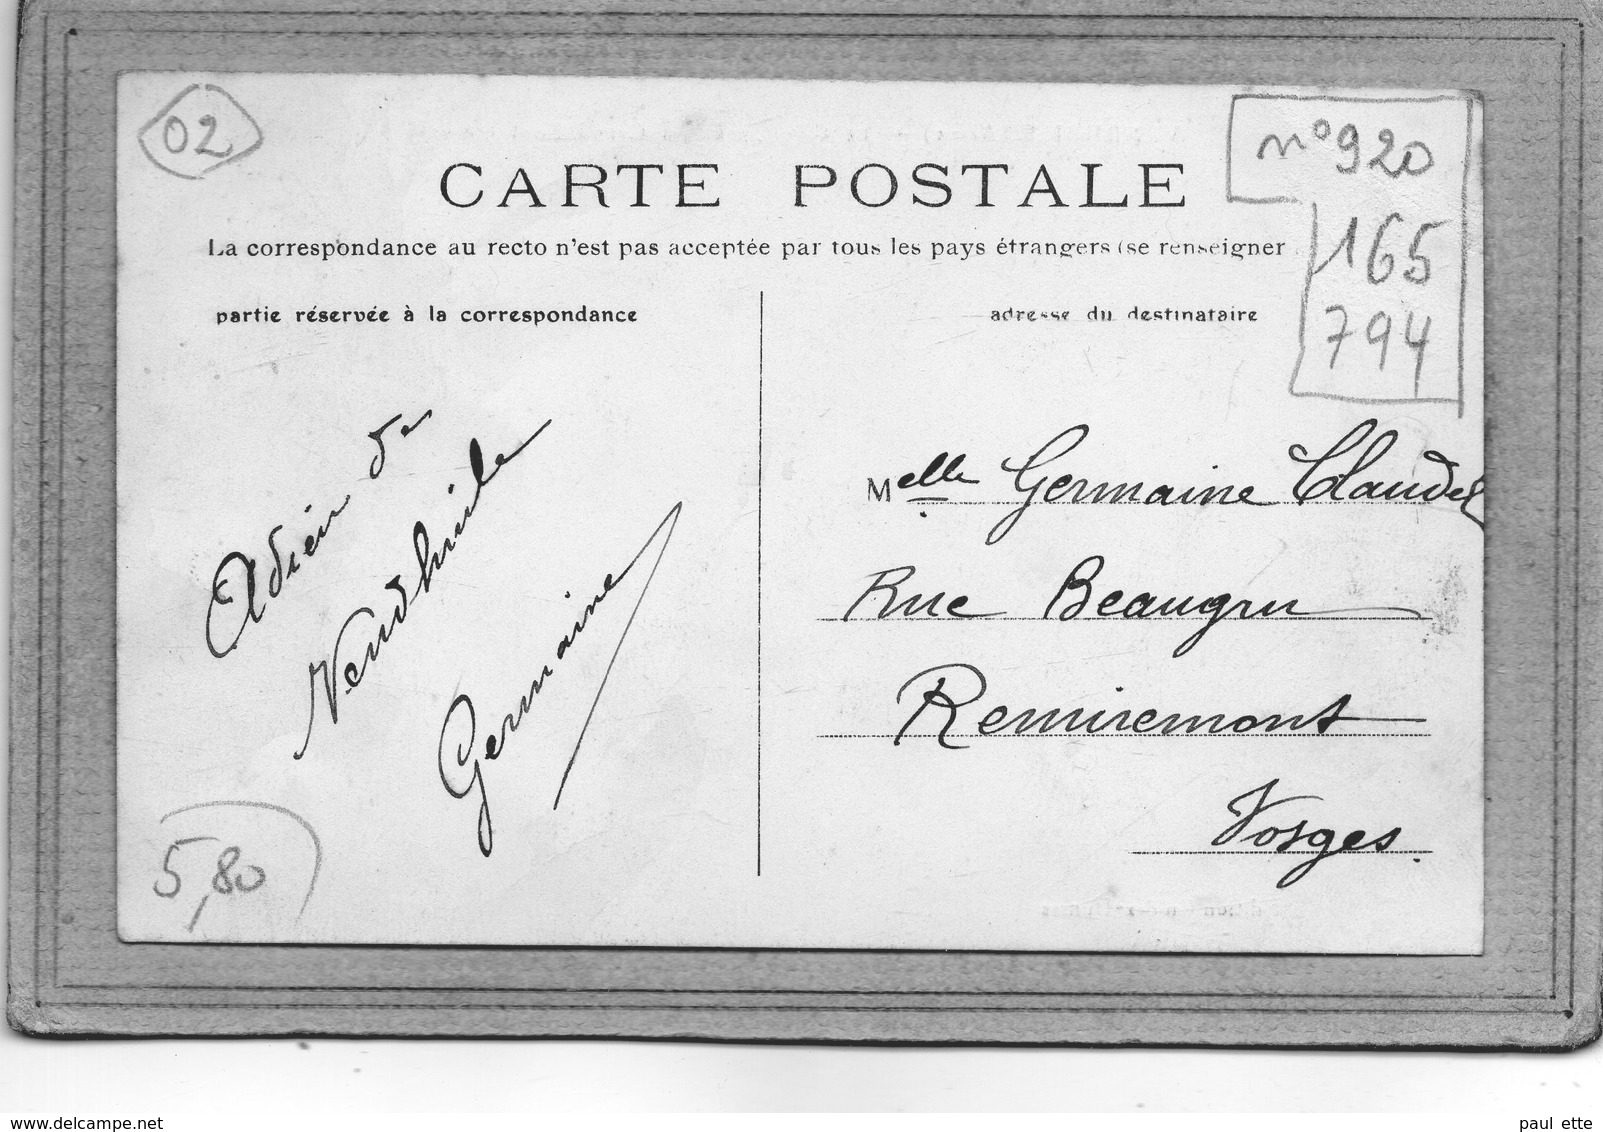 02
n° 920
165
794
CARTE POSTALE
La correspondance au recto n'est pas acceptée par tous les pays étrangers (se renseigner
partie réservée à la correspondance
adresse du destinataire
Adieu de
Vendhuile
Germaine
Melle Germaine Claudel
Rue Beaugru
Remiremont
Vosges.
5,80
www.delcampe.net
paul ette